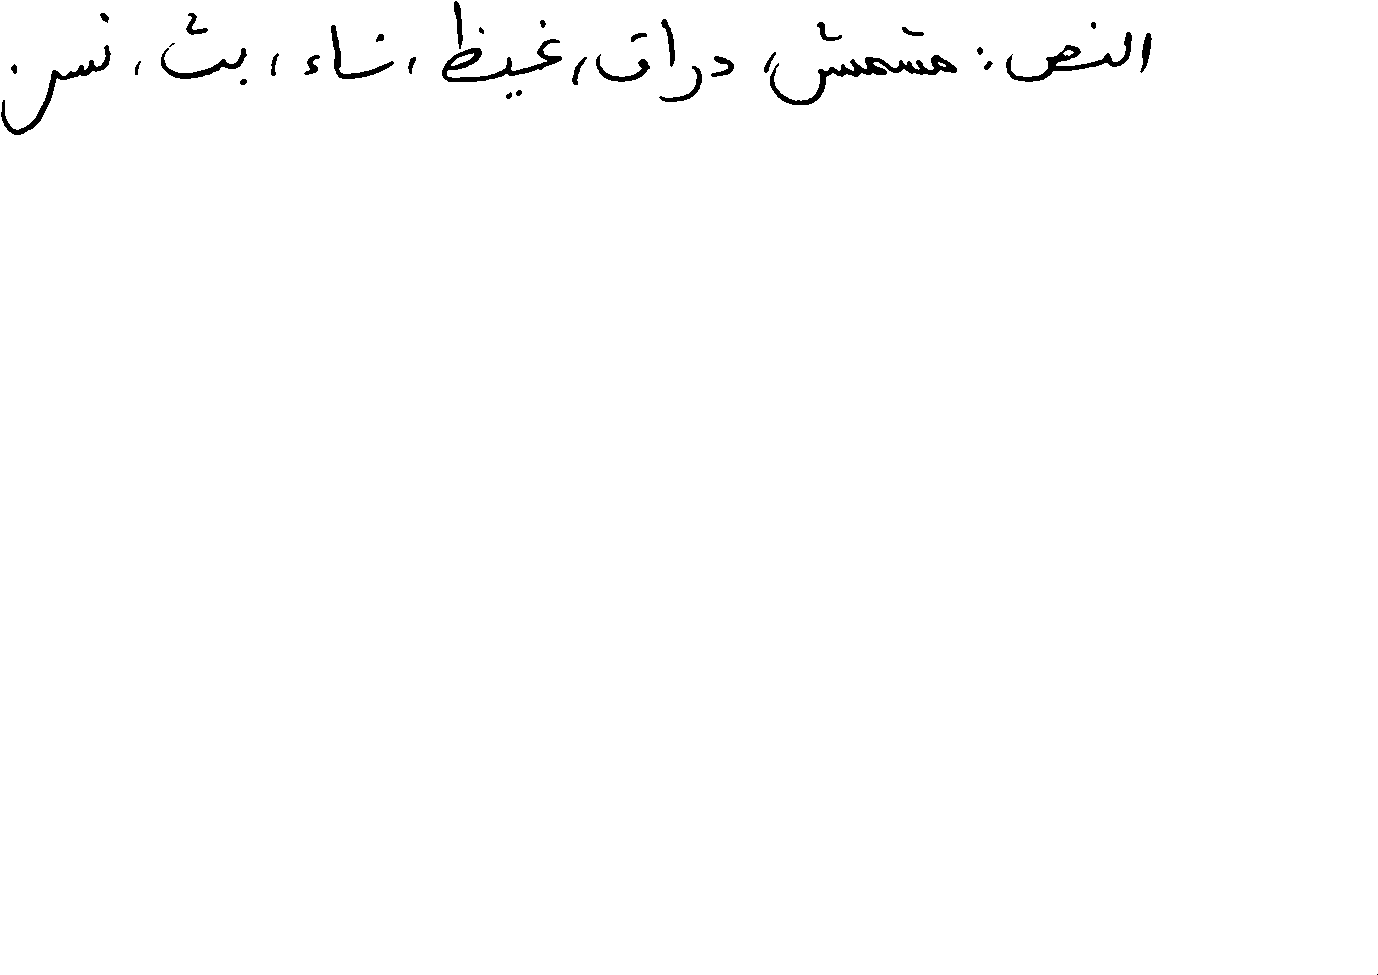 النص: مشمش، دراق، غيظ، نساء، بث، نسر.